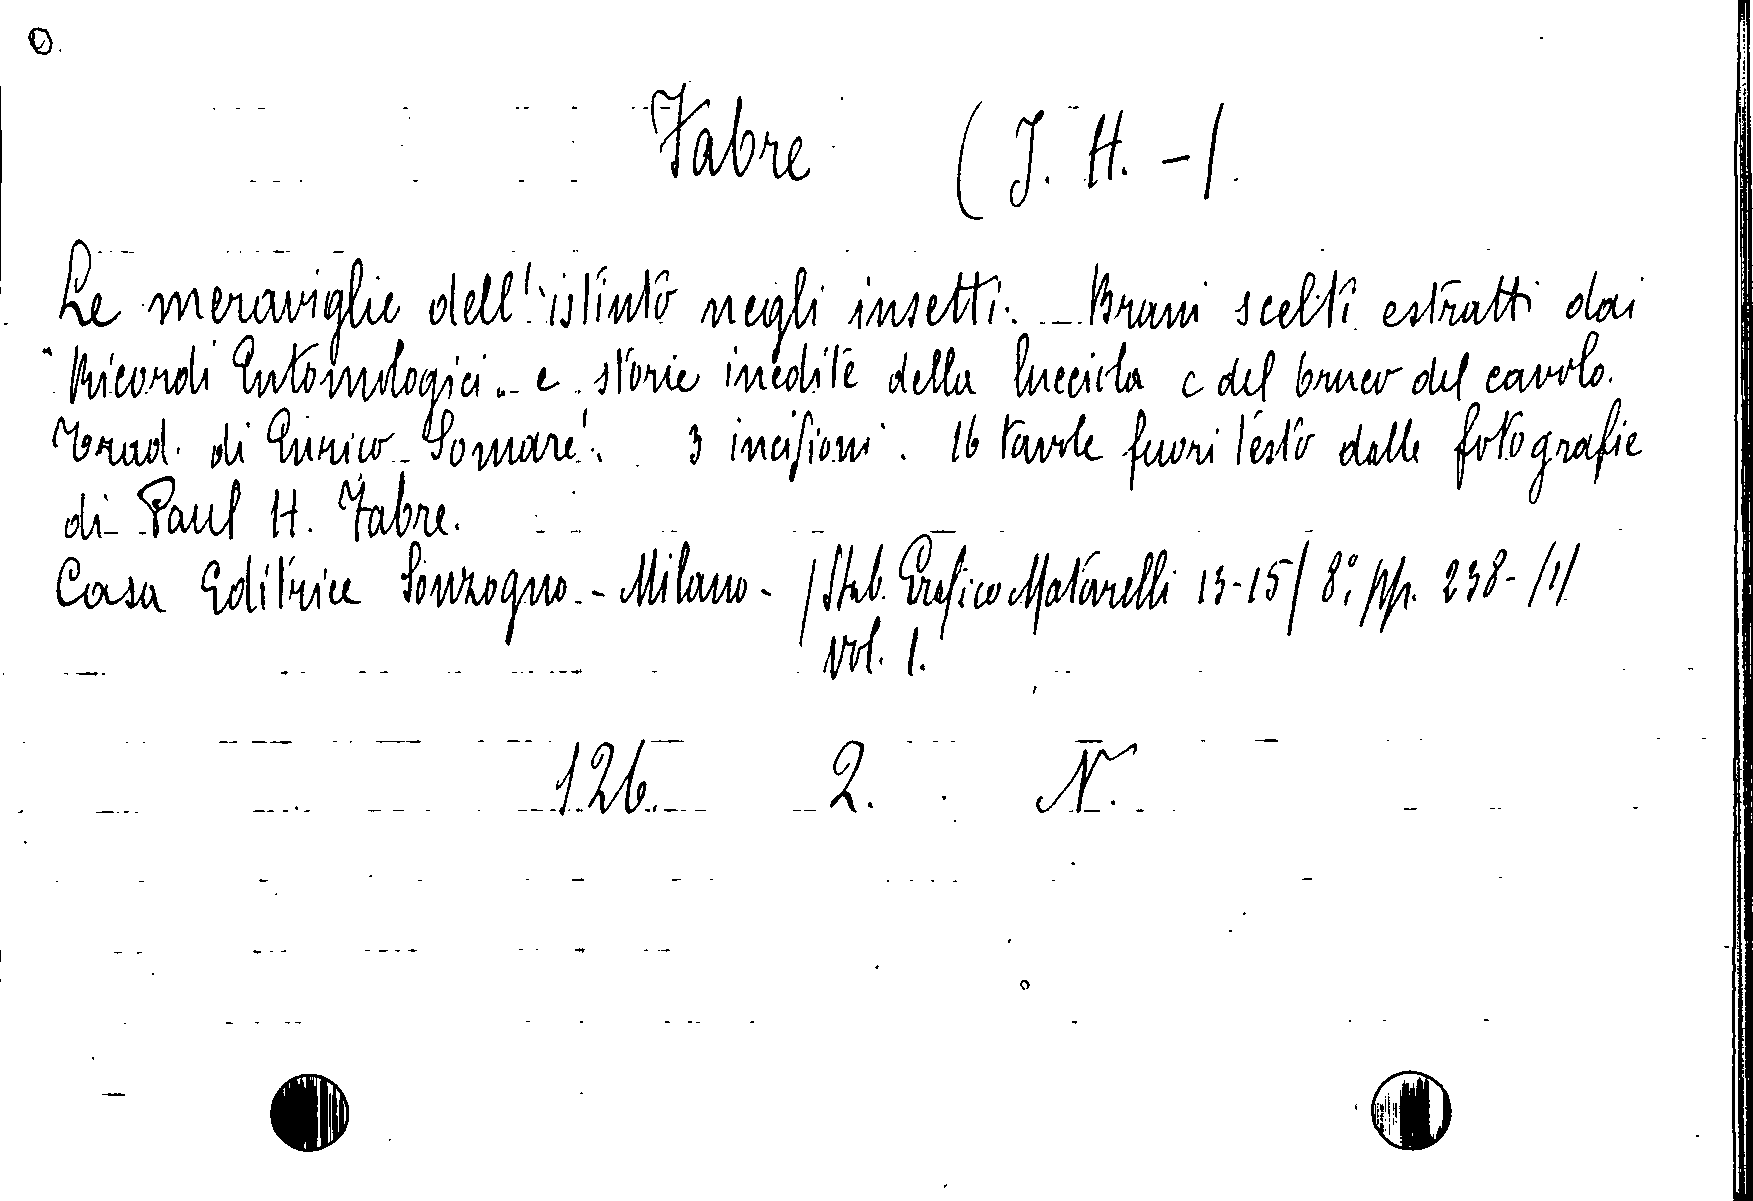 Fabre (J. H. -).
Le meraviglie dell'istinto negli insetti. Brani scelti estratti dai
"Ricordi Entomologici" e storie inedite della lucciola e del bruco del cavolo.
Trad. di Enrico Somaré. 3 incisioni. 16 tavole fuori testo dalle fotografie
di Paul H. Fabre.
Casa Editrice Sonzogno - Milano - /Stab. Grafico Matarelli 13-15/ 8° pp. 238-/1/
vol. 1.
126. 2. N.